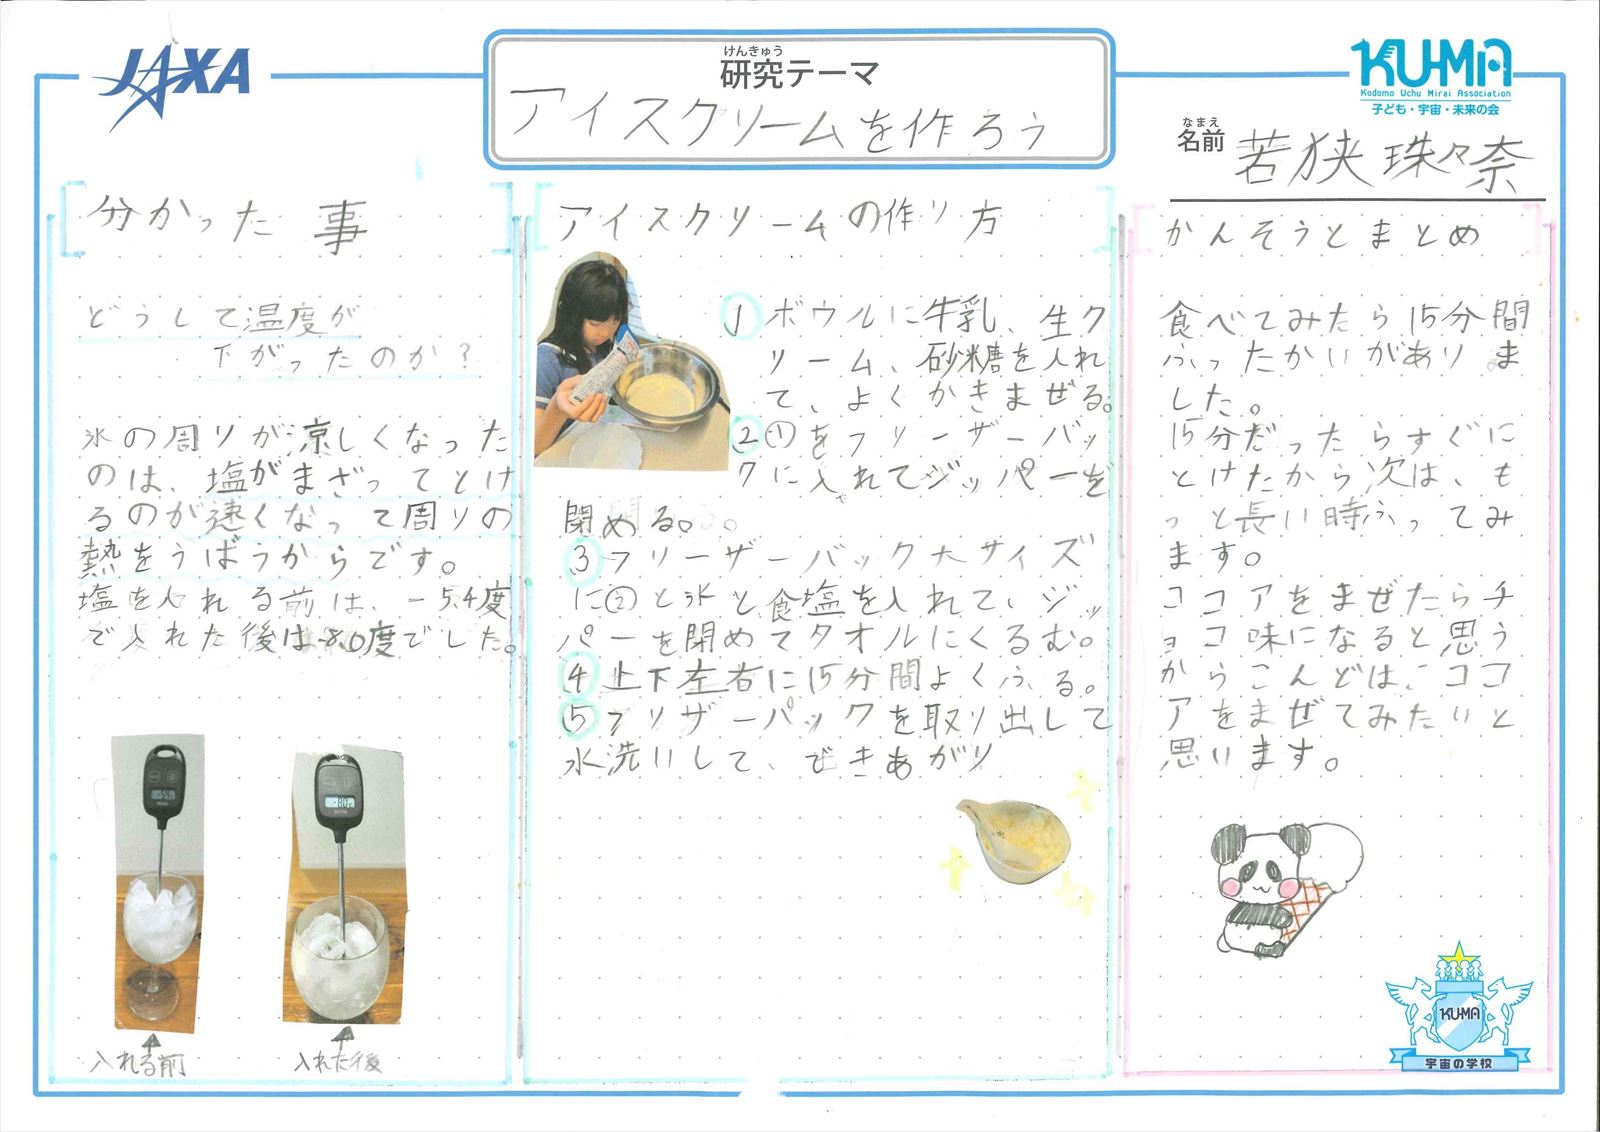 JAXA
けんきゅう
研究テーマ
アイスクリームを作ろう
KU-MA
Kodomo Uchu Mirai Association
子ども・宇宙・未来の会
なまえ
名前
若狭 珠々奈
分かった事
どうして温度が
下がったのか?
氷の周りが涼しくなった
のは、塩がまざってとけ
るのが速くなって周りの
熱をうばうからです。
塩を入れる前は、-5.4度
で入れた後は-8.0度でした。
入れる前
入れた後
アイスクリームの作り方
① ボウルに牛乳、生ク
リーム、砂糖を入れ
て、よくかきまぜる。
② ①をフリーザーバッ
クに入れてジッパーを
閉める。
③フリーザーバック大サイズ
に②と氷と食塩を入れて、ジッ
パーを閉めてタオルにくるむ。
④上下左右に15分間よくふる。
⑤フリザーパックを取り出して
水洗いして、できあがり
かんそうとまとめ
食べてみたら15分間
ふったかいがありま
した。
15分だったらすぐに
とけたから次は、も
っと長い時ふってみ
ます。
ココアをまぜたらチ
ョコ味になると思う
からこんどは、ココ
アをまぜてみたいと
思います。
KUMA
宇宙の学校